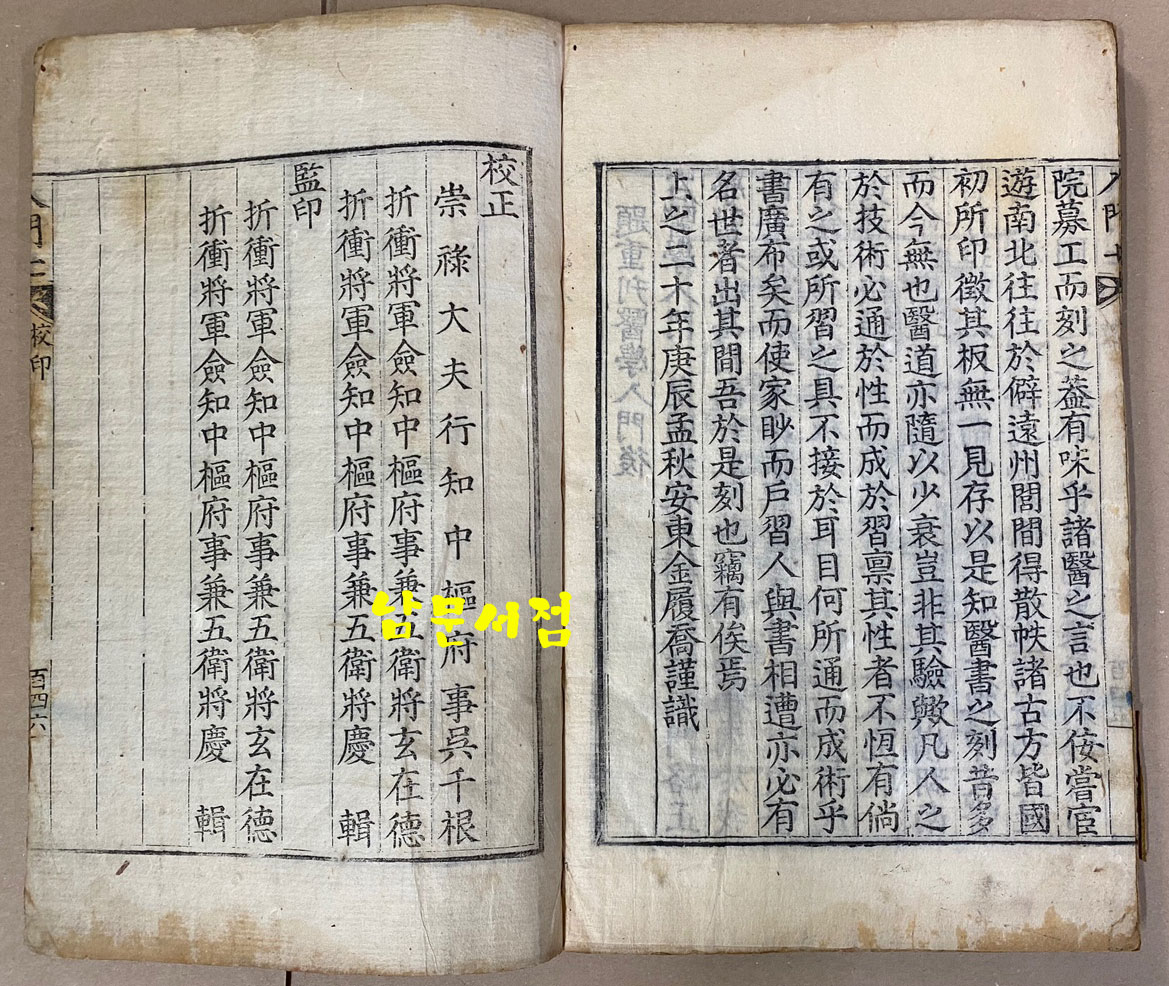 院募工而刻之蓋有味乎諸醫之言也不佞嘗宦
遊南北往往於僻遠州閭間得散帙諸古方皆國
初所印徵其板無一見存以是知醫書之刻昔多
而今無也醫道亦隨以少衰豈非其驗歟凡人之
於技術必通於性而成於習稟其性者不恆有倘
有之或所習之具不接於耳目何所通而成術乎
書廣布矣而使家眇而戶習人與書相遭亦必有
名世者出其間吾於是刻也竊有俟焉
上之二十年庚辰孟秋安東金履喬謹識
題重刊醫學入門後
校正
崇祿大夫行知中樞府事吳千根
折衝將軍僉知中樞府事兼五衛將玄在德
折衝將軍僉知中樞府事兼五衛將慶 輯
監印
折衝將軍僉知中樞府事兼五衛將玄在德
折衝將軍僉知中樞府事兼五衛將慶 輯
校印
百四六
남문서점